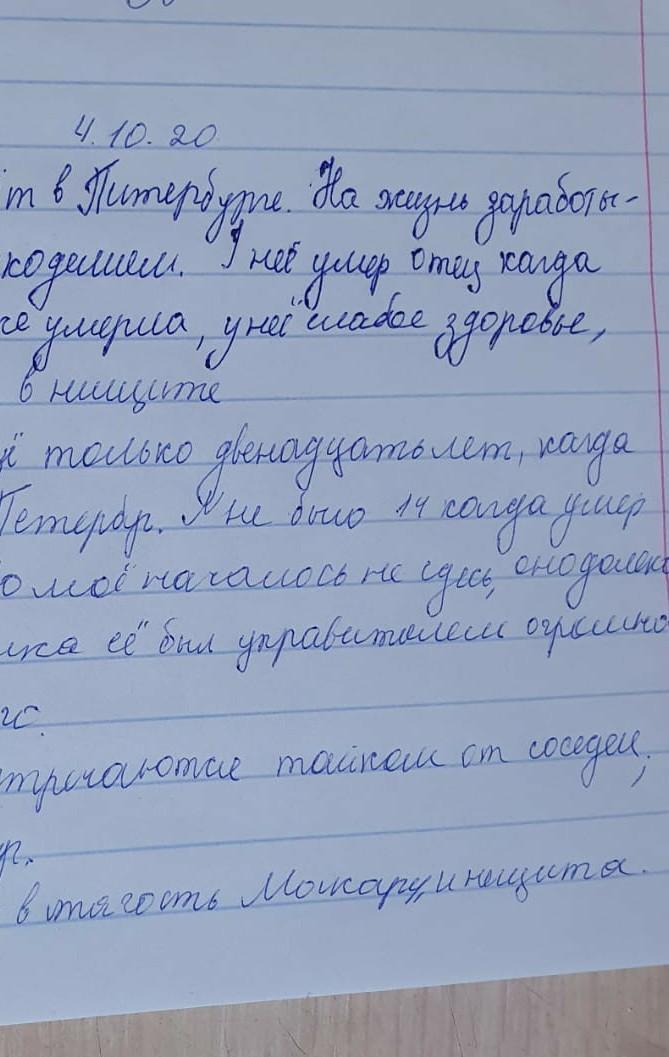 4.10.20
т в Питербурге. На жизнь заработы-
коделием. У неё умер отец кагда
че умерла, у неё слабое здоровье,
в нищите
ё только двенадцать лет, кагда
Петербр. Мне было 14 кагда умер
о моё началось не здесь, оно долеко
ика её был управителем огромно
го.
тречаются тайком от соседей,
р.
в тягость Макару, и нещита.